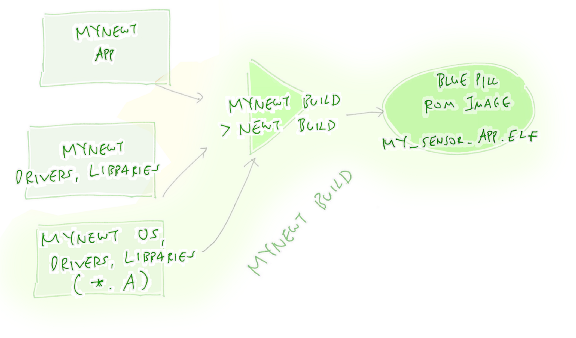 MYNEWT
APP
MYNEWT
DRIVERS, LIBRARIES
MYNEWT OS,
DRIVERS, LIBRARIES
(*.A)
MYNEWT BUILD
> NEWT BUILD
BLUE PILL
ROM IMAGE
MY_SENSOR_APP.ELF
MYNEWT BUILD